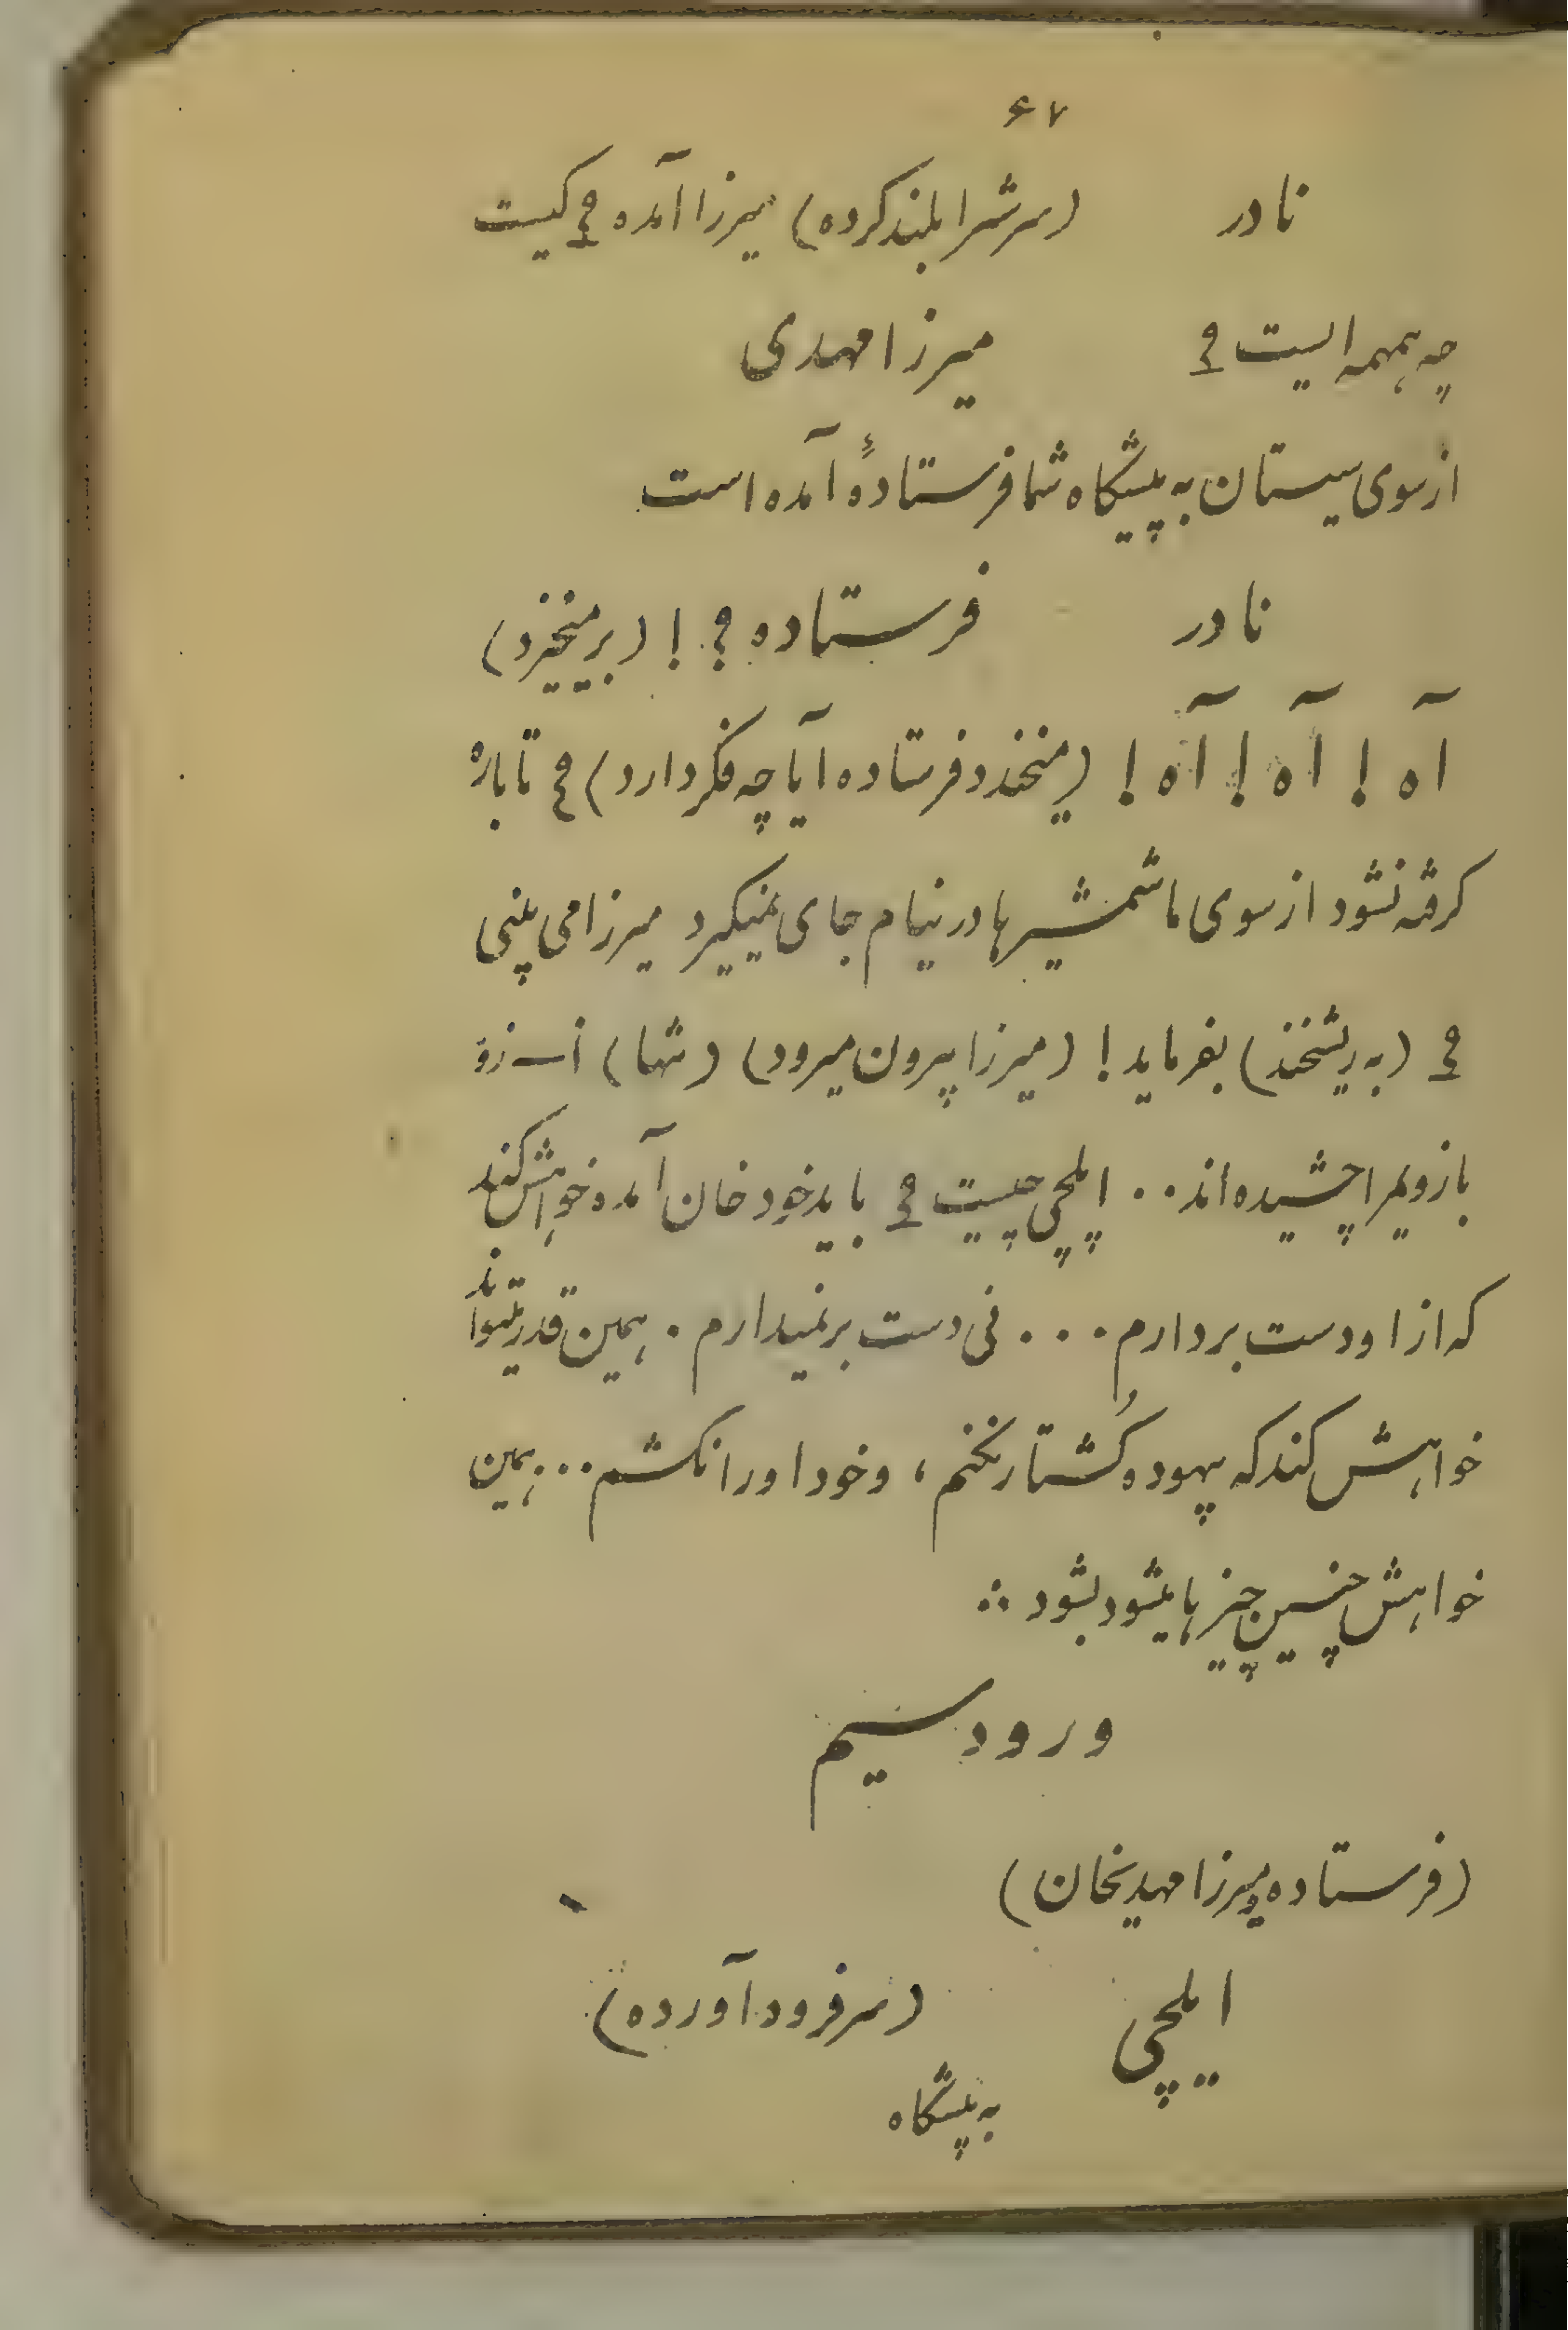 ۶۷
نادر (سرشرا بلند کرده) میرزا آمده؟ کیست
چه همهمه ایست؟ میرزا مهدی
از سوی سیستان به پیشگاه شما فرستادهٔ آمده است
نادر فرستاده؟! (بر میخیزد)
آه! آه! آه! (میخندد فرستاده آیا چه فکر دارد)؟ تا باره
گرفته نشود از سوی ما شمشیرها در نیام جای نمیگیرد میرزا می بینی
؟ (به ریشخند) بفرماید! (میرزا بیرون میرود) (تنها)
بازویمرا چشیده اند.. ایلچی چیست؟ باید خود خان آمده خواهش کند
که از او دست بردارم... نی دست بر نمیدارم. همین قدر میتواند
خواهش کند که بیهوده کُشتار نکنم، و خود او را نکشم... همین
خواهش چنین چیزها میشود بشود ∴
ورود سیم
(فرستاده و میرزا مهدیخان)
ایلچی (سر فرود آورده)
به پیشگاه